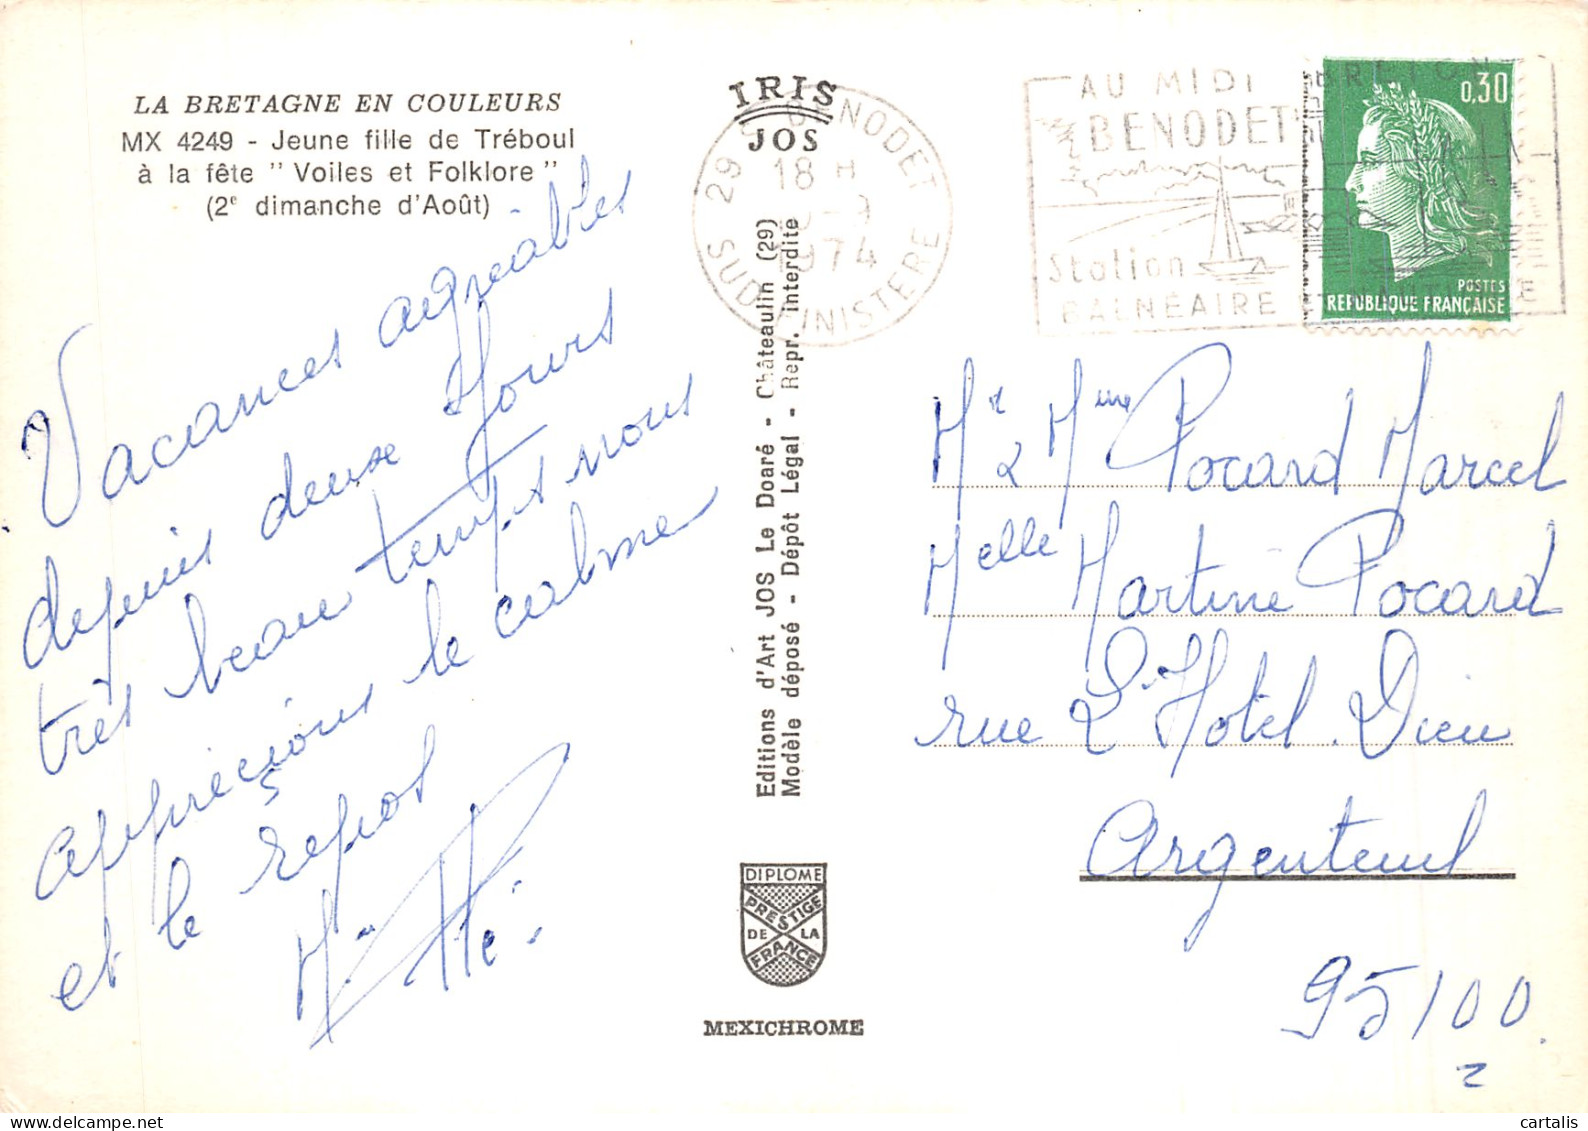 LA BRETAGNE EN COULEURS
MX 4249 - Jeune fille de Tréboul
à la fête " Voiles et Folklore "
(2e dimanche d'Août)
Vacances agréables
depuis deux Jours
très beau temps nous
apprécions le calme
et le repos
IRIS
JOS
29 S BENODET
18 H
-9
1974
SUD FINISTERE
AU MIDI
BENODET
Station
BALNÉAIRE
0,30
POSTES
REPUBLIQUE FRANÇAISE
Editions d'Art JOS Le Doaré - Châteaulin (29)
Modèle déposé - Dépôt Légal - Repr. interdite
DIPLOME
PRESTIGE
DE LA
FRANCE
MEXICHROME
Mr & Mme Pocard Marcel
Melle Martine Pocard
rue L'Hotel. Dieu
Argenteuil
95100.
cartalis
delcampe.net